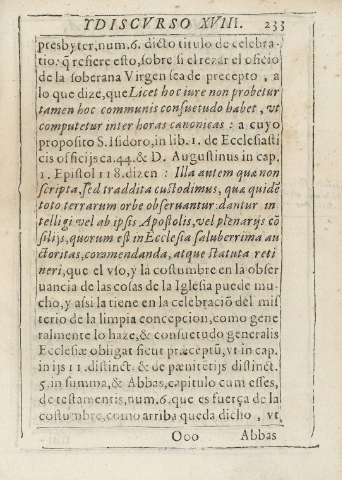 YDISCVRSO XVIII. 233
presbyter, num. 6. dicto titulo de celebra-
tio. q̃ refiere esto, sobre si el rezar el oficio
de la soberana Virgen sea de precepto, a
lo que dize, que Licet hoc iure non probetur
tamen hoc communis consuetudo habet, vt
computetur inter horas canonicas: a cuyo
proposito S. Isidoro, in lib. 1. de Ecclesiasti
cis officijs ca. 44. & D. Augustinus in cap.
1. Epistol 118. dizen: Illa autem quæ non
scripta, sed traddita custodimus, quæ quidẽ
toto terrarum orbe obseruantur. dantur in
telligi vel ab ipsis Apostolis, vel plenarijs cõ
silijs, quorum est in Ecclesia saluberrima au
ctoritas, commendanda, atque statuta reti
neri, que el vso, y la costumbre en la obser
uancia de las cosas de la Iglesia puede mu-
cho, y assi la tiene en la celebraciõ del mis
terio de la limpia concepcion, como gene
ralmente lo haze, & consuetudo generalis
Ecclesiæ obligat sicut præceptũ, vt in cap.
in ijs 11. distinct. & de pænitetijs distinct.
5. in summa, & Abbas, capitulo cum esses,
de testamentis, num. 6. que es fuerça de la
costumbre, como arriba queda dicho, vt
Ooo Abbas